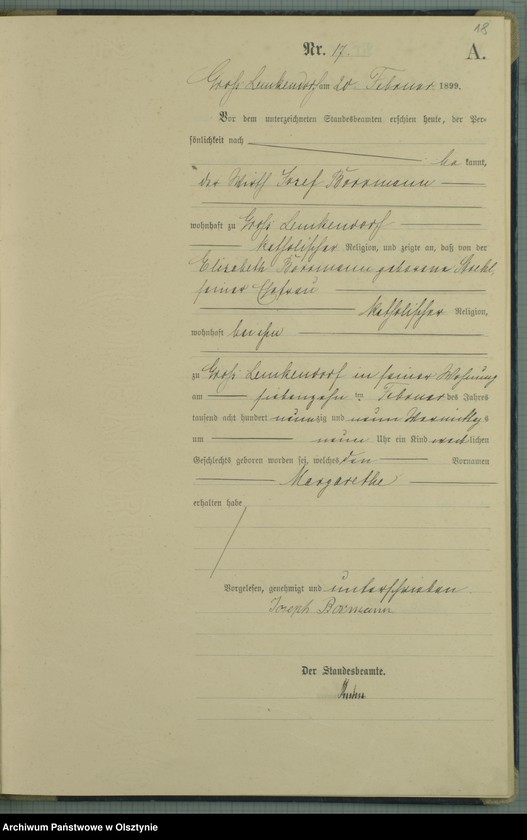 18
Nr. 17.
A.
Groß Lemkendorf am 20 Februar 1899.
Vor dem unterzeichneten Standesbeamten erschien heute, der Per-
sönlichkeit nach
be kannt,
der Wirth Josef Bormann
wohnhaft zu Groß Lemkendorf
katholischer Religion, und zeigte an, daß von der
Elisabeth Bormann geborene
seiner Ehefrau
katholischer Religion,
wohnhaft bei ihm
zu Groß Lemkendorf in seiner Wohnung
am siebenzehn ten Februar des Jahres
tausend acht hundert neunzig und neun Vormittags
um neun Uhr ein Kind weiblichen
Geschlechts geboren worden sei, welches den Vornamen
Margarethe
erhalten habe
Vorgelesen, genehmigt und unterschrieben
Joseph Bormann
Der Standesbeamte.
Archiwum Państwowe w Olsztynie